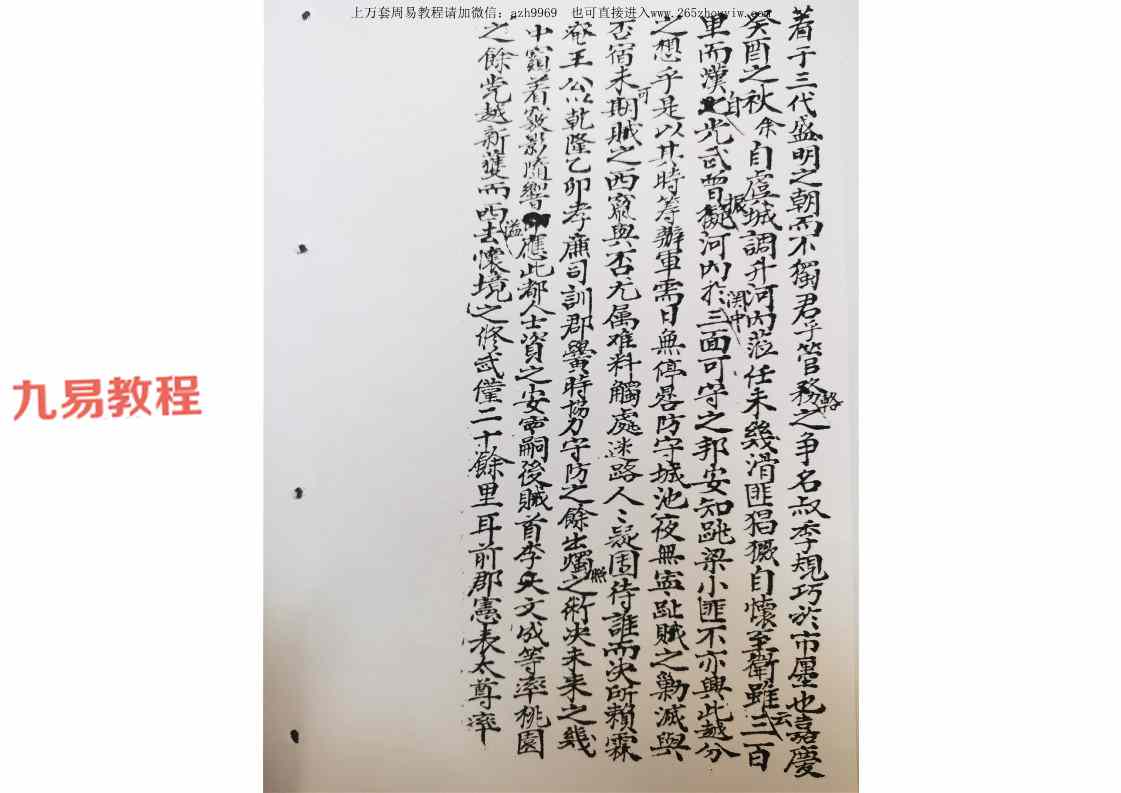 上万套周易教程请加微信：azh9969 也可直接进入www.265zhouyiw.com
九易教程
著于三代盛明之朝而不獨君子管務之争名叔季規巧於市壥也嘉慶
輅
癸酉之秋余自虞城調升河内蒞任未幾滑匪猖獗自懷至衛雖三百
云
里而漢光武曾擬河内於三面可守之邦安知跳梁小匪不亦興此越分
自
據
関中
之想乎是以其時筹辦軍需日無停晷防守城池夜無寧趾賊之勦滅與
否宿未期賊之西竄與否尤属难料觸處迷路人〻疑固待誰而決所賴霖
可
菴王公以乾隆乙卯孝廉司訓郡黌時協力守防之餘出燭之術决未来之幾
照
中窾着竅影随響應此都人士資之安甯嗣後賊首李文成等率桃園
之餘党越新獲而西去懷境之修武僅二十餘里耳前郡憲表太尊率
溢